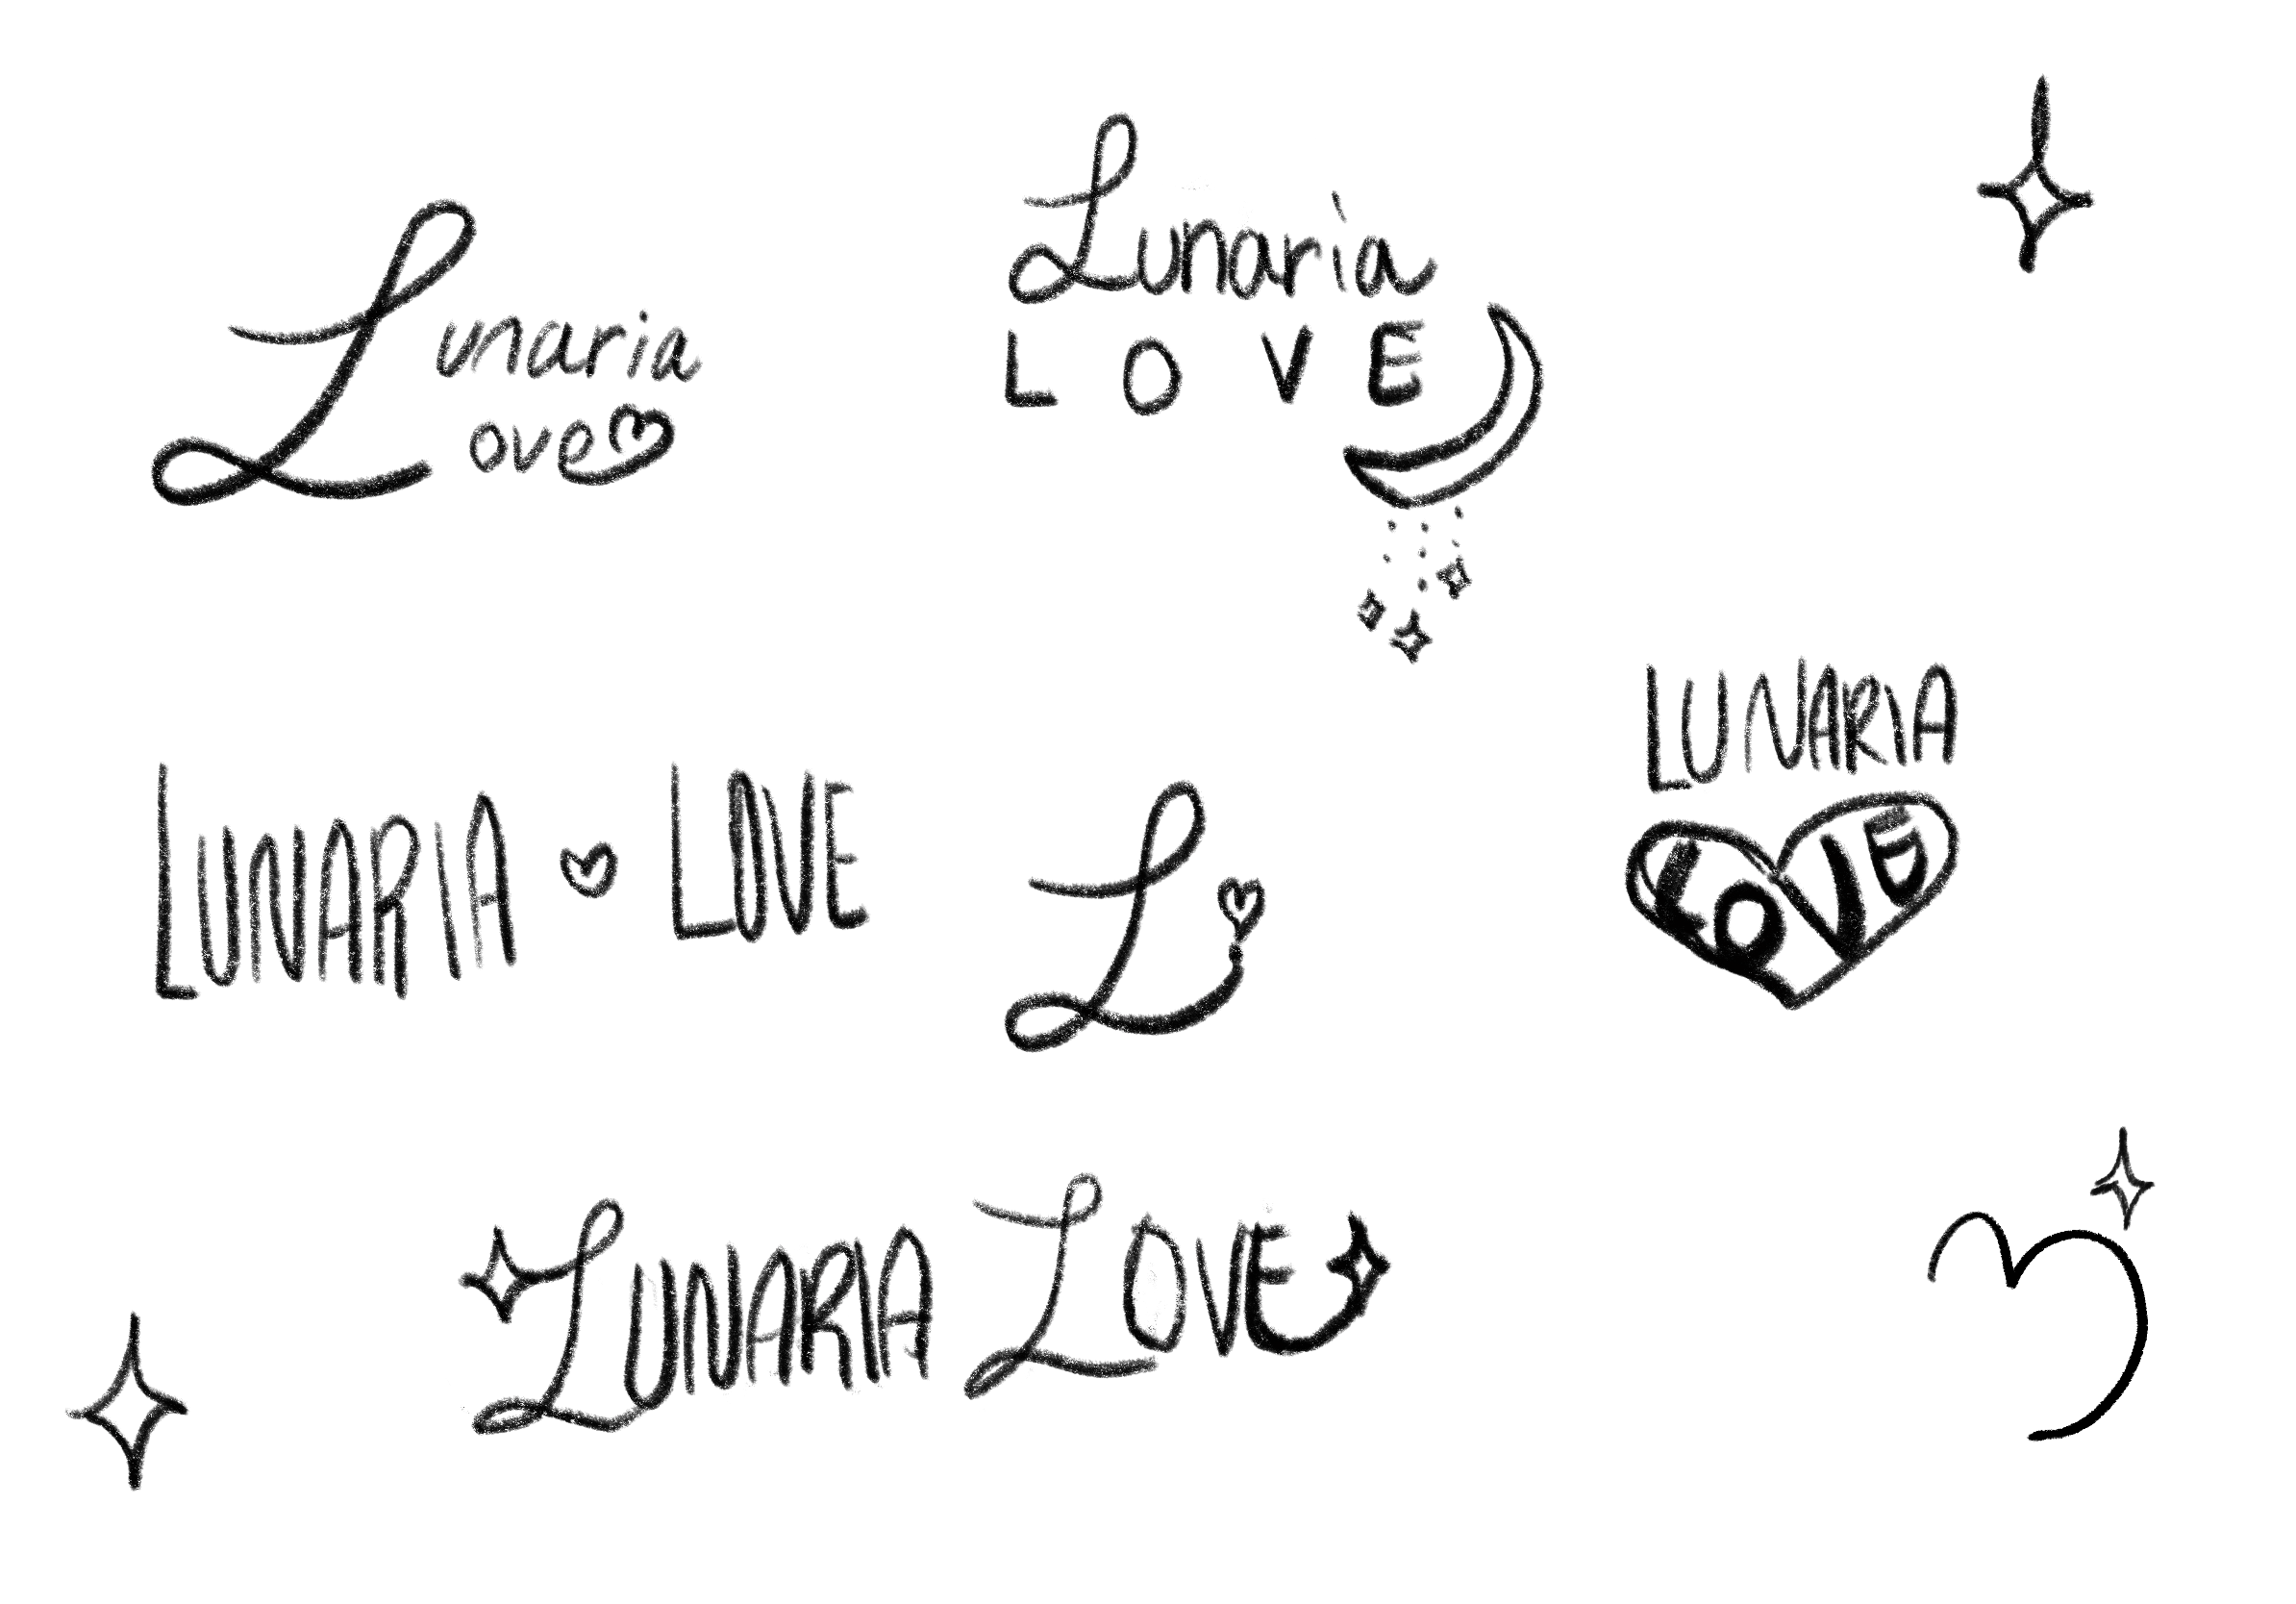 Lunaria
ove
Lunaria
LOVE
LUNARIA
LOVE
LUNARIA LOVE
L
LUNARIA LOVE